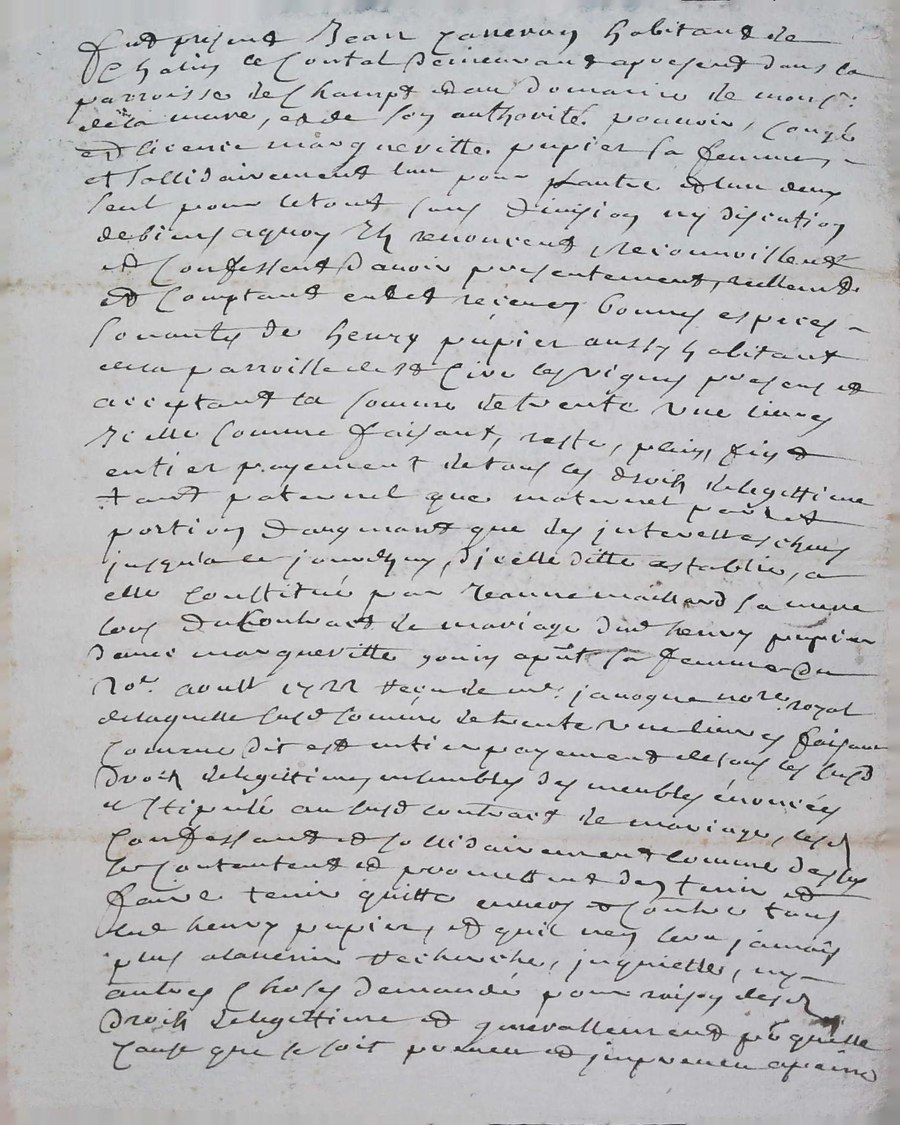 fut present Jean habitant de
Chalin le Contal demeurant apresent dans la
parroisse de Champt et au Domaine de monsr.
de la mure, et de son authorité pouvoir, congé
et licence margueritte pupier sa femme,
et sollidairement lun pour lautre et lun deux
seul pour le tout sans division ny discution
de biens aquoy Ils renoncent, reconnoissent
et Confessent d'avoir presentement, reellemt
et Comptant eu et receu en bonnes especes
sonantes de henry pupier aussy habitant
de la parroisse de st Cire les vignes present et
acceptant la somme de trente une livres
Icelle somme faisant, reste, plein, fin et
entier payement de tous les droits de legittime
tant paternel que maternel part et
portion d'augmant que des interets escheus
jusqua ce jourdhuy, dicelle ditte establie, a
elle Constitué par Jeanne maillard sa mere
lors du Contrait de mariage dud henry pupier
avec margueritte gonin aprnt sa femme du
20e. aoust 1722 reçu de me. janoque nore. royal
de laquelle susd somme de trente une livres faisant
comme dit est entier payement de tous les susd
droits de legittime, ensembles des meubles énoncées
et stipulé au susd contrait de mariage, lesd
Confessant et sollidairement comme dessus
se contentent et promettent den tenir et
faire tenir quitte envers et contre tous
led henry pupier, et quil nen sera jamais
plus alavenir recherché, inquietté, ny
autres Choses demandé pour raison desd
droits de legittime et generallement pr quelle
Cause que se soit preveu et impreveu apeine